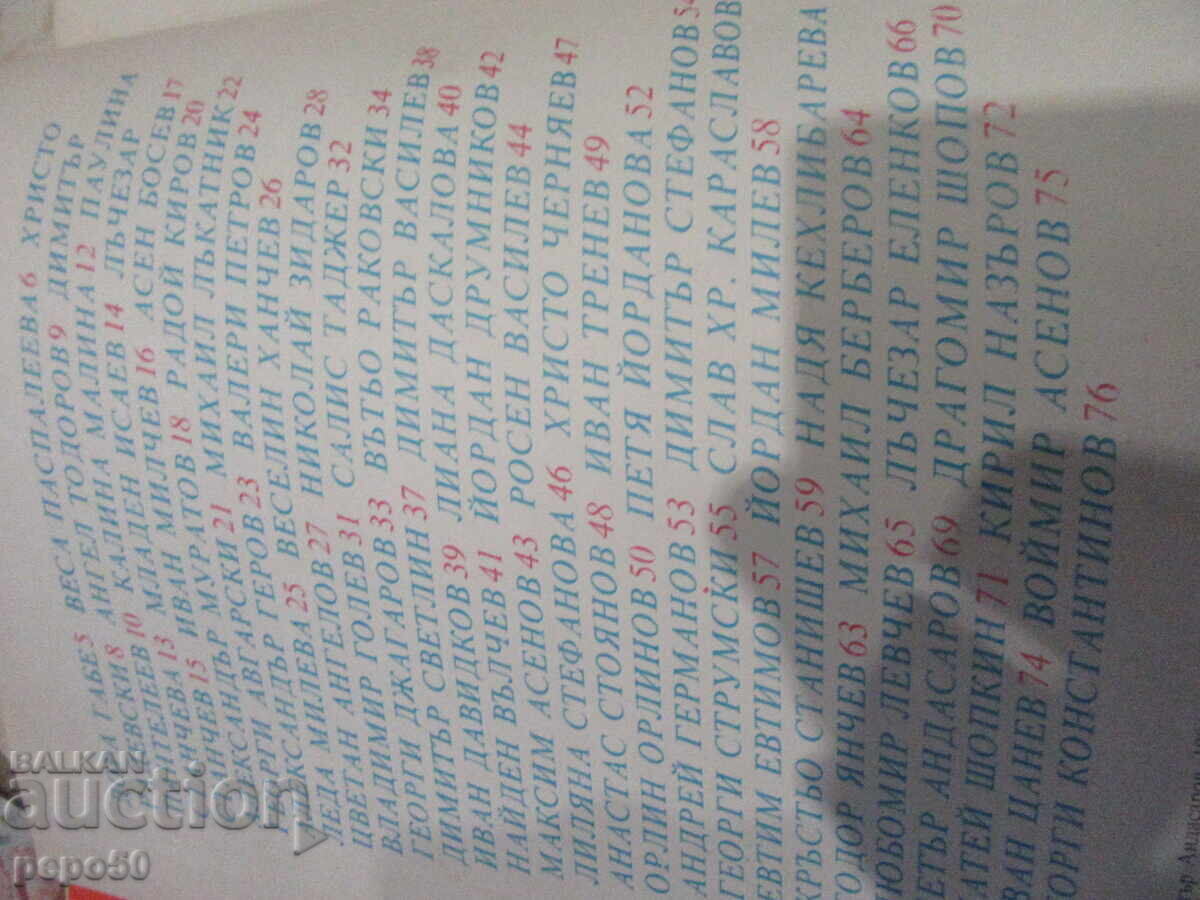 А ГАБЕ 5 ВЕСА ПАСПАЛЕЕВА 6 ХРИСТО
ЕВСКИ 8 АНГЕЛ ТОДОРОВ 9 ДИМИТЪР
НТЕЛЕЕВ 10 КАЛИНА МАЛИНА 12 ПАУЛИНА
НЧЕВА 13 МЛАДЕН ИСАЕВ 14 ЛЪЧЕЗАР
НЧЕВ 15 ИВАН МИЛЧЕВ 16 АСЕН БОСЕВ 17
КСАНДЪР МУРАТОВ 18 РАДОЙ КИРОВ 20
РГИ АВГАРСКИ 21 МИХАИЛ ЛЪКАТНИК 22
КСАНДЪР ГЕРОВ 23 ВАЛЕРИ ПЕТРОВ 24
ЛЕДА МИЛЕВА 25 ВЕСЕЛИН ХАНЧЕВ 26
ЦВЕТАН АНГЕЛОВ 27 НИКОЛАЙ ЗИДАРОВ 28
ВЛАДИМИР ГОЛЕВ 31 САЛИС ТАДЖЕР 32
ГЕОРГИ ДЖАГАРОВ 33 ВЪТЬО РАКОВСКИ 34
ДИМИТЪР СВЕТЛИН 37 ДИМИТЪР ВАСИЛЕВ 38
ИВАН ДАВИДКОВ 39 ЛИАНА ДАСКАЛОВА 40
НАЙДЕН ВЪЛЧЕВ 41 ЙОРДАН ДРУМНИКОВ 42
МАКСИМ АСЕНОВ 43 РОСЕН ВАСИЛЕВ 44
ЛИЛЯНА СТЕФАНОВА 46 ХРИСТО ЧЕРНЯЕВ 47
АНАСТАС СТОЯНОВ 48 ИВАН ТРЕНЕВ 49
ОРЛИН ОРЛИНОВ 50 ПЕТЯ ЙОРДАНОВА 52
АНДРЕЙ ГЕРМАНОВ 53 ДИМИТЪР СТЕФАНОВ 54
ГЕОРГИ СТРУМСКИ 55 СЛАВ ХР. КАРАСЛАВОВ
ЕВТИМ ЕВТИМОВ 57 ЙОРДАН МИЛЕВ 58
КРЪСТЬО СТАНИШЕВ 59 НАДЯ КЕХЛИБАРЕВА
ТОДОР ЯНЧЕВ 63 МИХАИЛ БЕРБЕРОВ 64
ЛЮБОМИР ЛЕВЧЕВ 65 ЛЪЧЕЗАР ЕЛЕНКОВ 66
ПЕТЪР АНДАСАРОВ 69 ДРАГОМИР ШОПОВ 70
МАТЕЙ ШОПКИН 71 КИРИЛ НАЗЪРОВ 72
ИВАН ЦАНЕВ 74 ВОЙМИР АСЕНОВ 75
ГЕОРГИ КОНСТАНТИНОВ 76
BALKAN
auction
pepo50